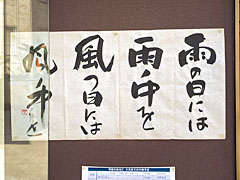 雨の日には
雨ノ中を
風の日には
風ノ中を